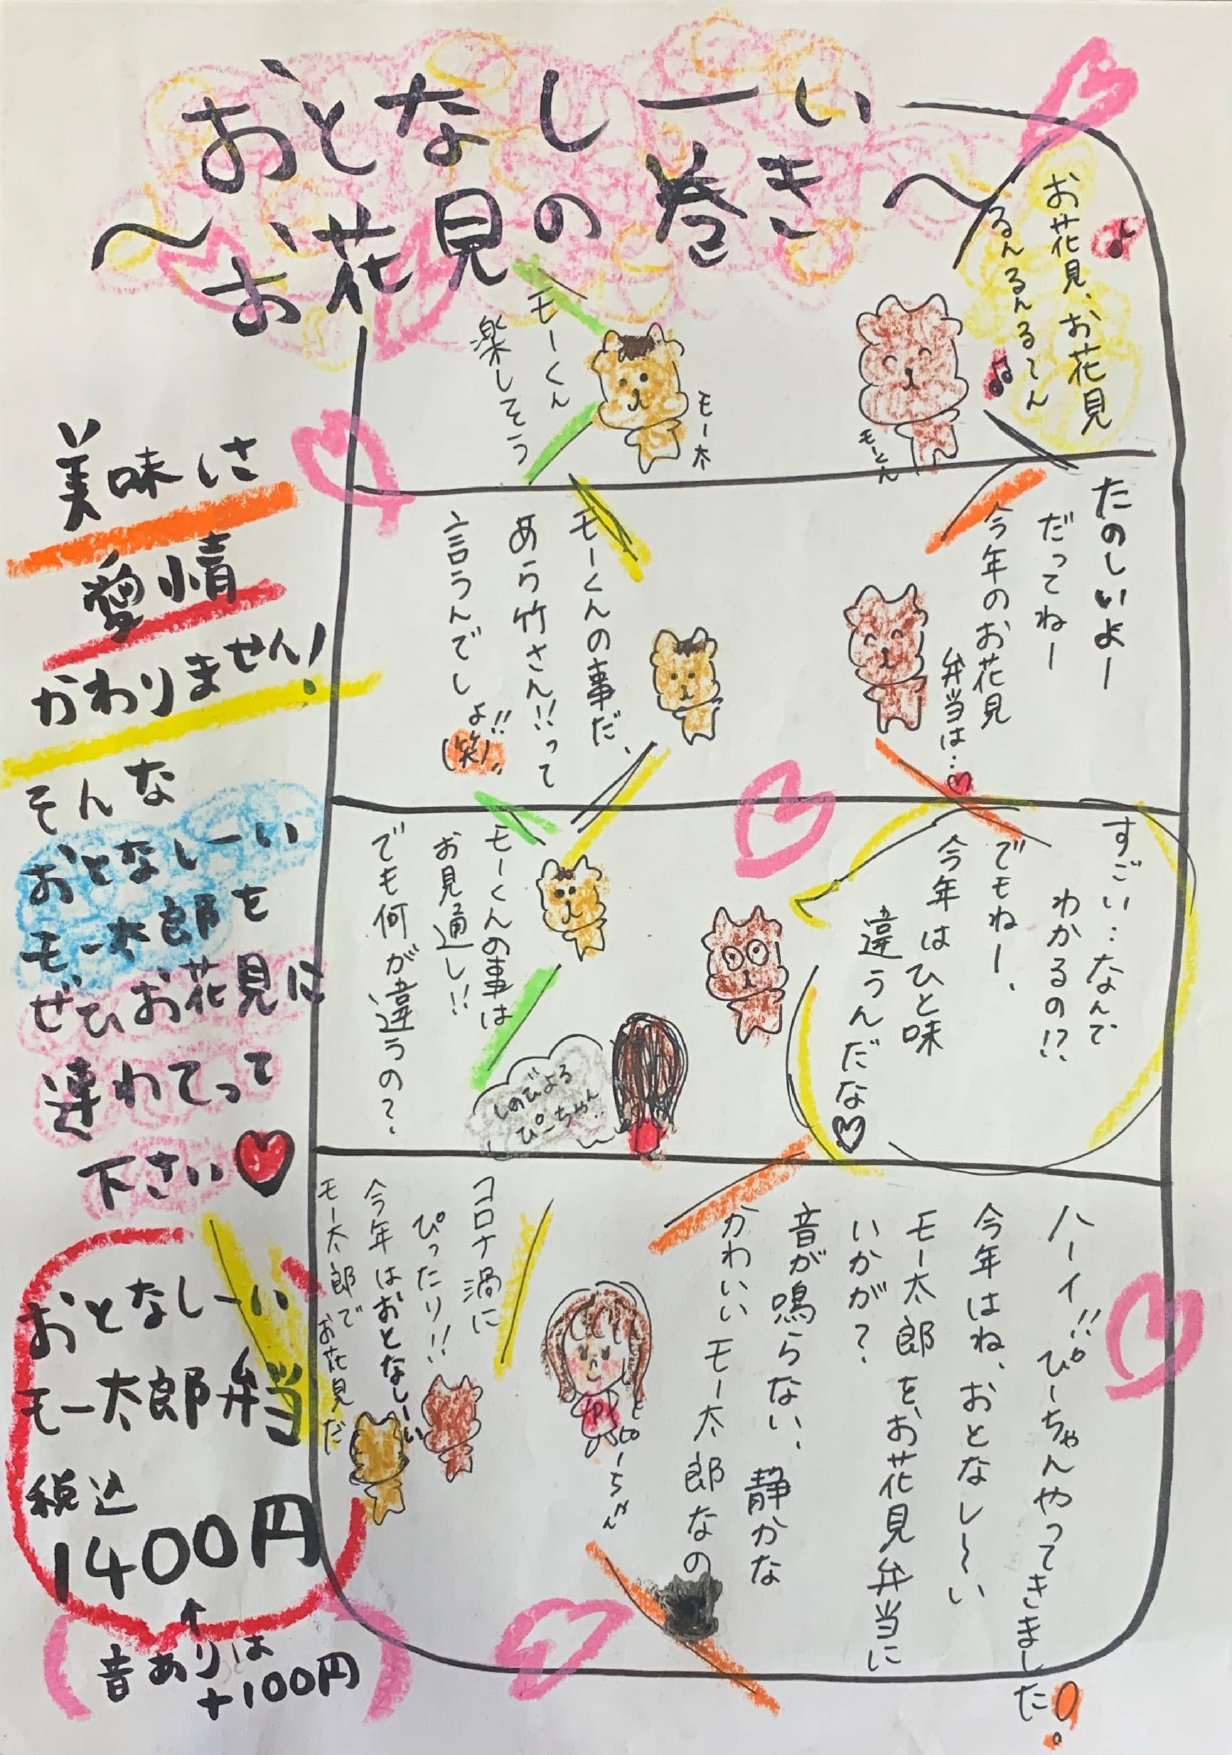 おとなしーい
～お花見の巻き～
お花見、お花見
るんるんるーん
モーくん
モーくん
楽しそう
モー太
たのしいよー
だってねー
今年のお花見
弁当は…♡
モーくんの事だ、
あら竹さん!!って
言うんでしょ!!
(笑)
すごい…なんで
わかるの!?
でもねー、
今年はひと味
違うんだな♡
モーくんの事は
お見通し!!
でも何が違うの？
しのびよる
ぴーちゃん…
ハーイ!!ぴーちゃんやってきました!
今年はね、おとなし～い
モー太郎をお花見弁当に
いかが？
音が鳴らない、静かな
かわいいモー太郎なの
ぴーちゃん
コロナ渦に
ぴったり!!
今年はおとなしーい
モー太郎でお花見だ
美味しさ
愛情
かわりません!
そんな
おとなしーい
モー太郎を
ぜひお花見に
連れてって
下さい♥
おとなしーい
モー太郎弁当
税込
1400円
↑
(音ありは
+100円)